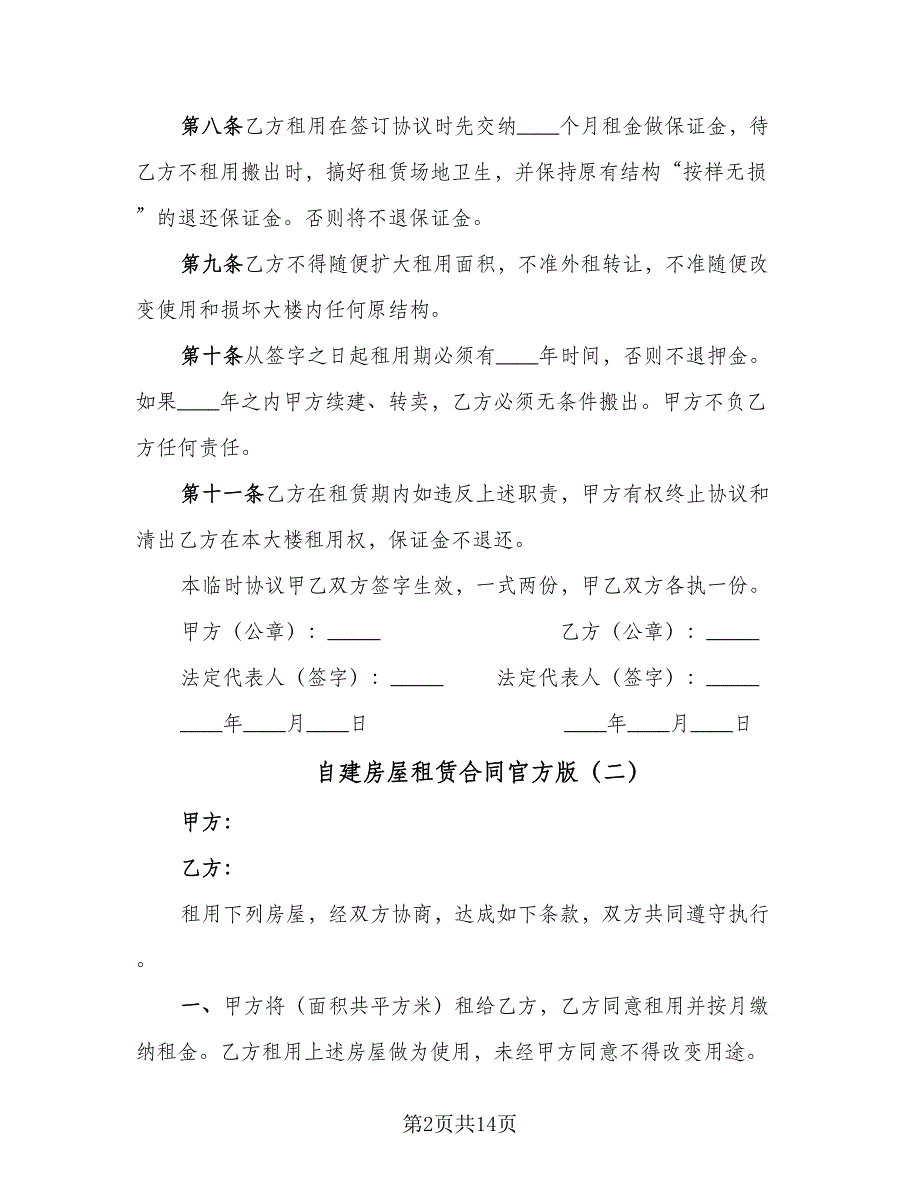 第八条乙方租用在签订协议时先交纳____个月租金做保证金，待
乙方不租用搬出时，搞好租赁场地卫生，并保持原有结构“按样无损
”的退还保证金。否则将不退保证金。
第九条乙方不得随便扩大租用面积，不准外租转让，不准随便改
变使用和损坏大楼内任何原结构。
第十条从签字之日起租用期必须有____年时间，否则不退押金。
如果____年之内甲方续建、转卖，乙方必须无条件搬出。甲方不负乙
方任何责任。
第十一条乙方在租赁期内如违反上述职责，甲方有权终止协议和
清出乙方在本大楼租用权，保证金不退还。
本临时协议甲乙双方签字生效，一式两份，甲乙双方各执一份。
甲方（公章）：_____ 乙方（公章）：_____
法定代表人（签字）：_____ 法定代表人（签字）：_____
____年____月____日 ____年____月____日
自建房屋租赁合同官方版（二）
甲方：
乙方：
租用下列房屋，经双方协商，达成如下条款，双方共同遵守执行
。
一、甲方将（面积共平方米）租给乙方，乙方同意租用并按月缴
纳租金。乙方租用上述房屋做为使用，未经甲方同意不得改变用途。
第2页共14页